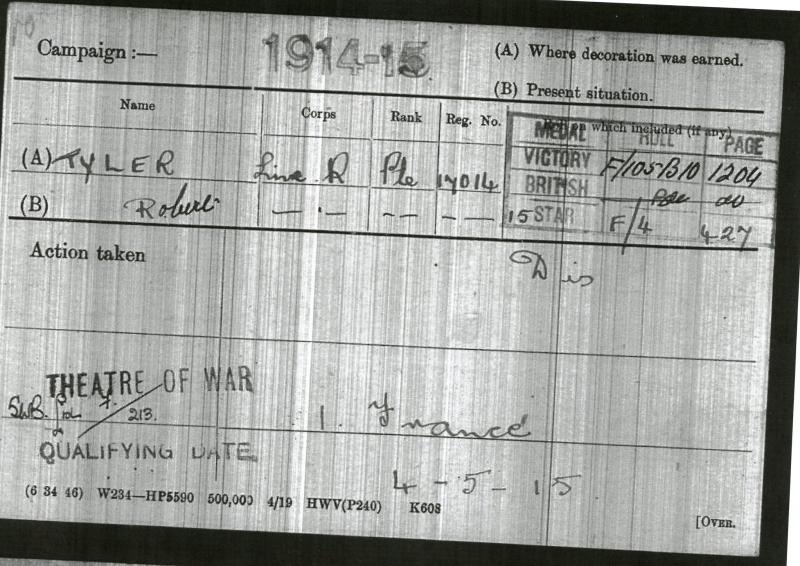 Campaign :— 1914-15 (A) Where decoration was earned.
(B) Present situation.
Name Corps Rank Reg. No. which included (if any)
MEDAL ROLL PAGE
(A) TYLER Linc R Pte 17014 VICTORY F/105/B10 1204
BRITISH do do
(B) Robert — — — — — — 15 STAR F/4 427
Action taken Dis
THEATRE OF WAR
SWB. F. 213. 1. France
QUALIFYING DATE
4-5-15
(6 34 46) W234—HP5590 500,000 4/19 HWV(P240) K608
[OVER.